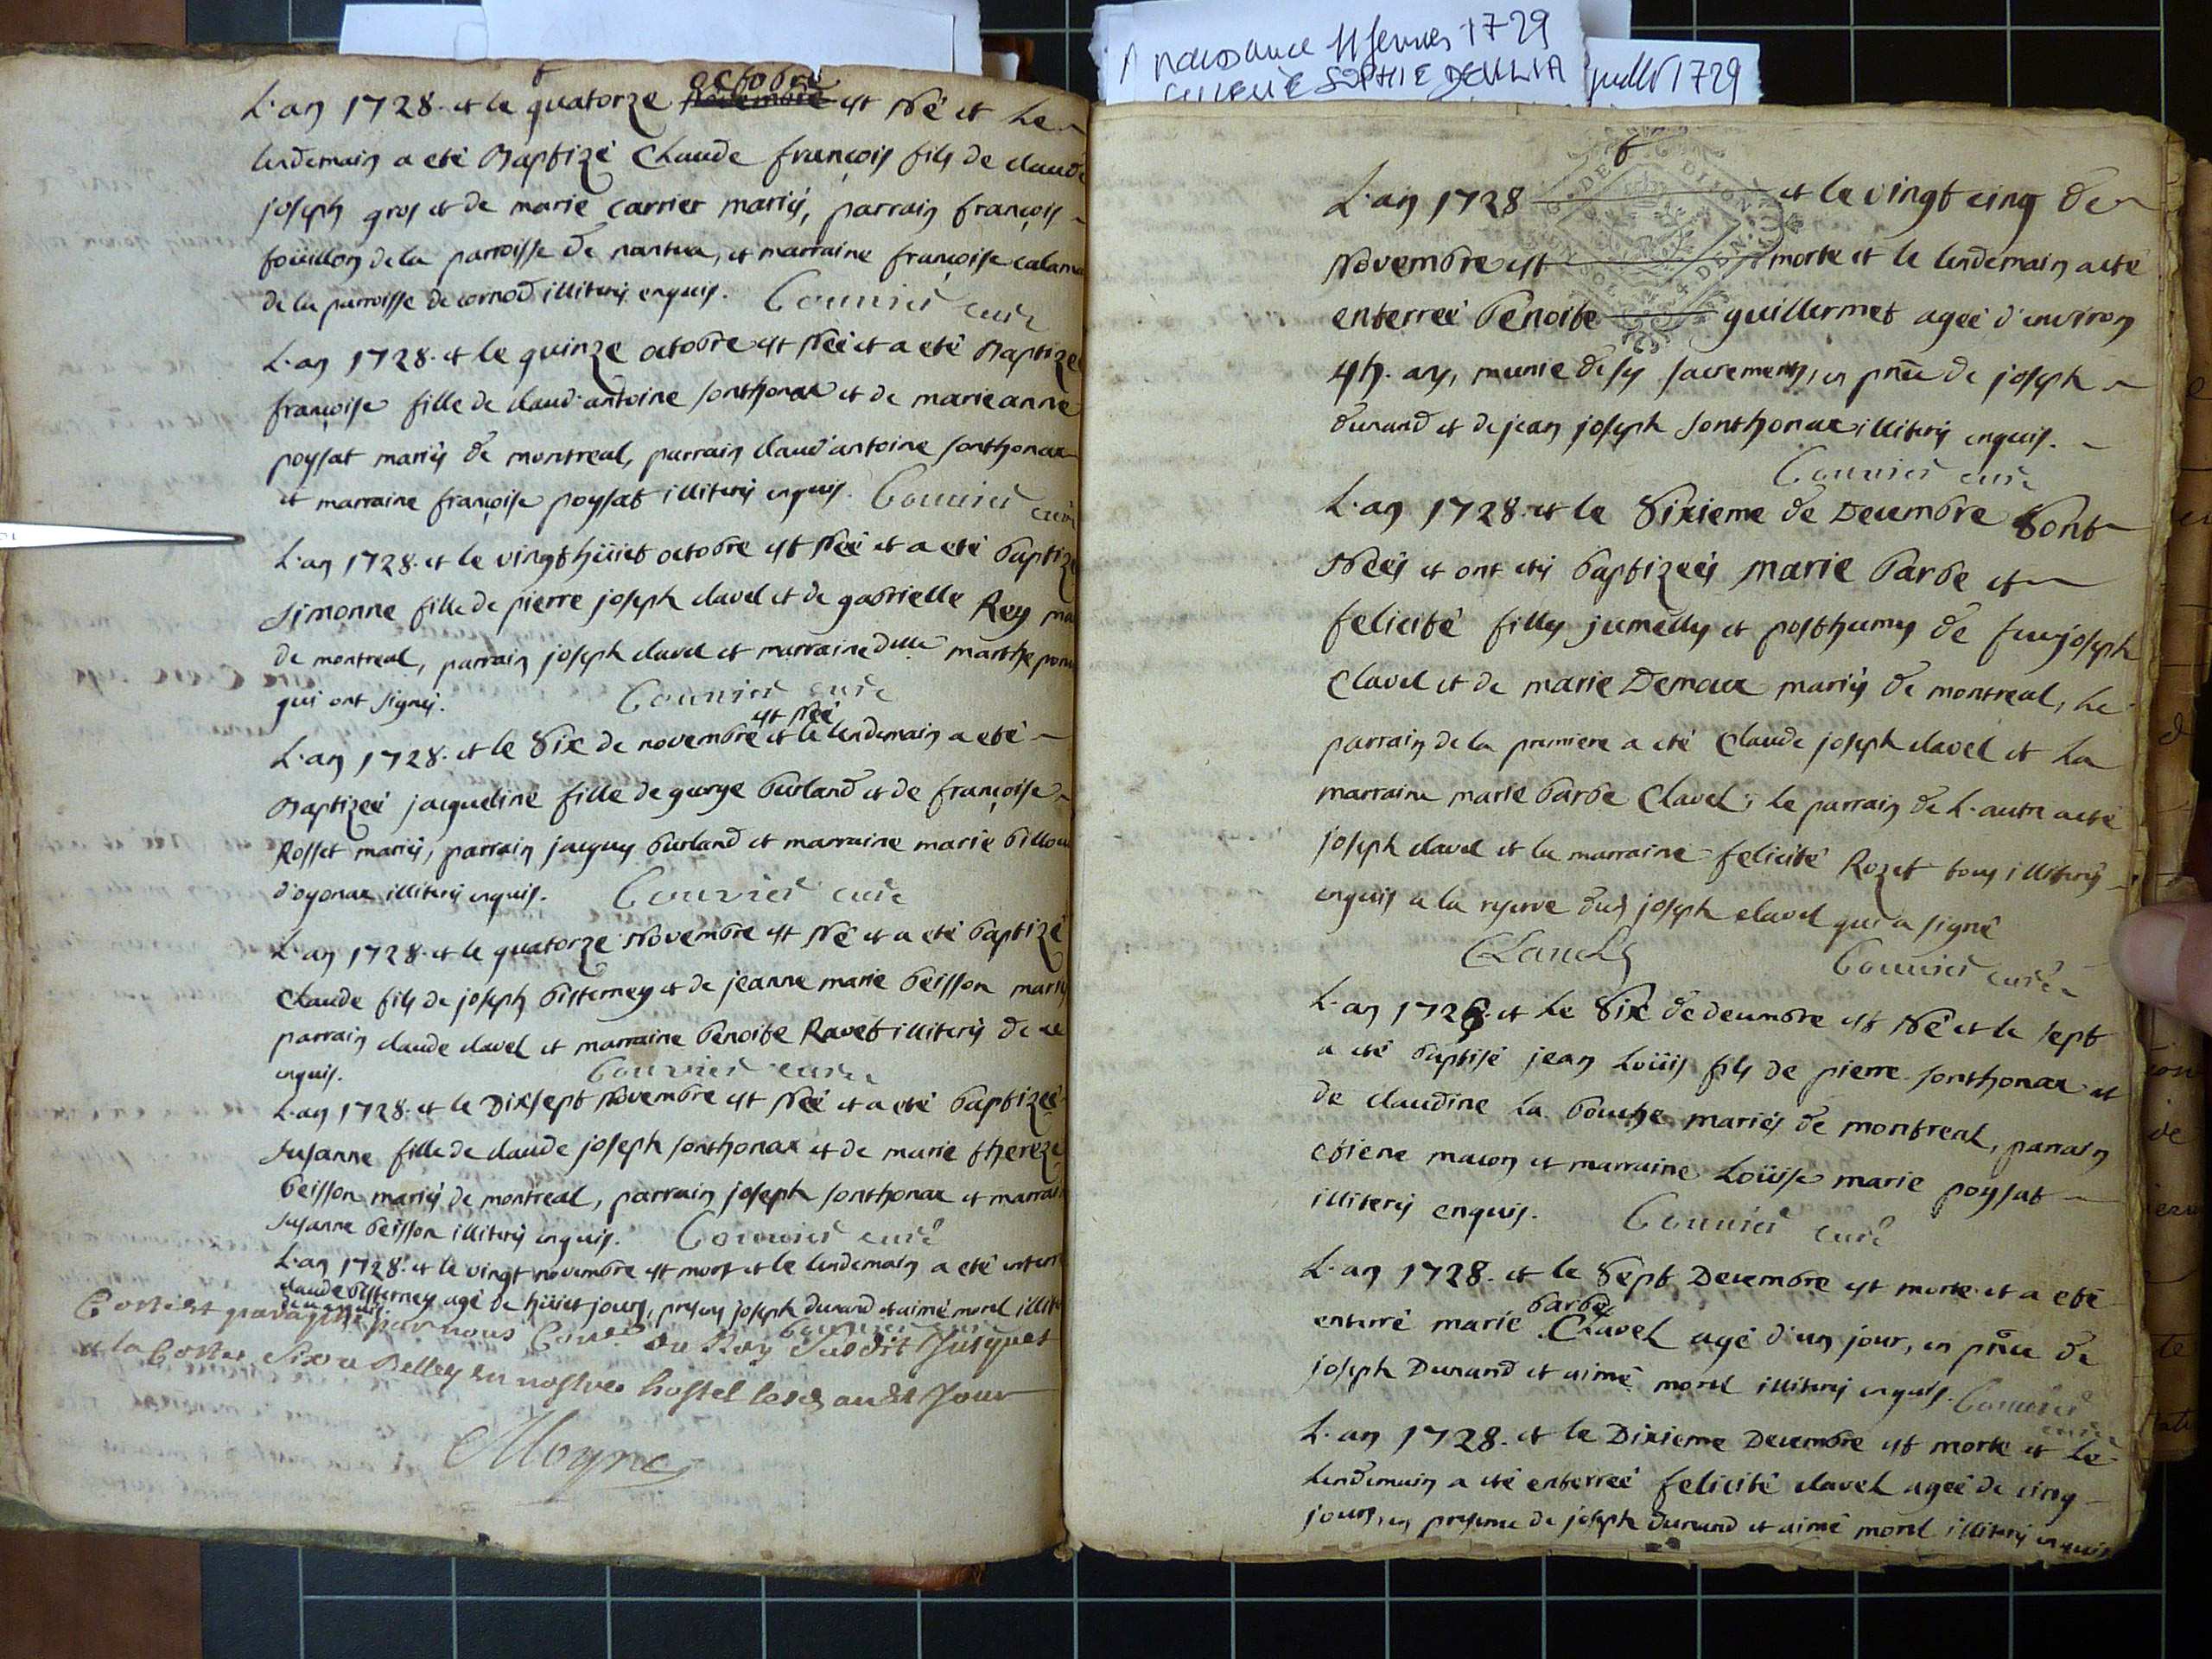 naissance 11 fevrier 1729
juillet 1729
L'an 1728. et le quatorze novembre octobre est Né et Le
lendemain a eté Baptizé Claude françois fils de claude
joseph gros et de marie carrier mariés, parrain françois
foüillon de la parroisse de nantua, et marraine françoise
de la parroisse de cornod illiterés enquis. Couvier curé
L'an 1728. et le quinze octobre est Née et a eté Baptizeé
françoise fille de claud'antoine sonthonax et de marieanne
poysat mariés de montreal, parrain claud'antoine sonthonax
et marraine françoise poysat illiterés enquis. Couvier curé
L'an 1728. et le vingt hüiet octobre est Neé et a eté baptizé
Simonne fille de pierre joseph clavel et de gabrielle Rey
de montreal, parrain joseph clavel et marraine delle marthe
qui ont signés. Couvier curé
L'an 1728. et le Six de novembre est Neé et le lendemain a eté
Baptizeé jacqueline fille de george burland et de françoise
Rosset mariés, parrain jacques burland et marraine marie
d'oyonax illiterés enquis. Couvier curé
L'an 1728. et le quatorze Novembre est Né et a eté baptizé
Claude fils de joseph bisterney et de jeanne marie beisson mariés
parrain claude clavel et marraine benoite Ravet illiterés de ce
enquis. Couvier curé
L'an 1728. et le Dixsept Novembre est Neé et a eté baptizeé
Susanne fille de claude joseph sonthonax et de marie thereze
beisson mariés de montreal, parrain joseph sonthonax et
Susanne beisson illiterés enquis. Couvier curé
L'an 1728. et le vingt novembre est mort et le lendemain a eté
claude bisterney agé de hüiet jours, presens joseph durand et aimé morel
de ce enquis. Couvier curé
Cotté et paraphé par nous du Roy Susdit Jusques
a la Cotte Six a Belley en nostre hostel lesd an et Jour
Moyne
6
L'an 1728 et le vingt cinq de
Novembre est morte et le lendemain a eté
enterreé benoite guillermet ageé d'environ
ans, munie de ses sacrements, en pnce de joseph
durand et de jean joseph sonthonax illiterés enquis.
Couvier curé
L'an 1728. et le Sixieme de Decembre Sont
Neés et ont etés baptizeés marie barbe et
felicité filles jumelles et posthumes de feu joseph
Clavel et de marie Demoux mariés de montreal, Le
parrain de la premiere a eté Claude joseph clavel et La
marraine marie barbe Clavel, Le parrain de L'autre a eté
joseph clavel et la marraine felicité Rozet tous illiterés
enquis a la reserve dud joseph clavel qui a signé
Couvier curé
L'an 1728. et Le Six de decembre est Né et le sept
a eté baptisé jean Loüis fils de pierre sonthonax et
de claudine la bouche mariés de montreal, parrain
etiene macon et marraine Loüise marie poysat
illiterés enquis. Couvier curé
L'an 1728. et le Sept Decembre est morte et a eté
enterré marie barbe Clavel agé d'un jour, en pnce de
joseph Durand et aimé morel illiterés enquis. Couvier
curé
L'an 1728. et le Dixieme Decembre est morte et Le
lendemain a eté enterreé felicité clavel ageé de cinq
jours, en presence de joseph durand et aimé morel illiterés enquis